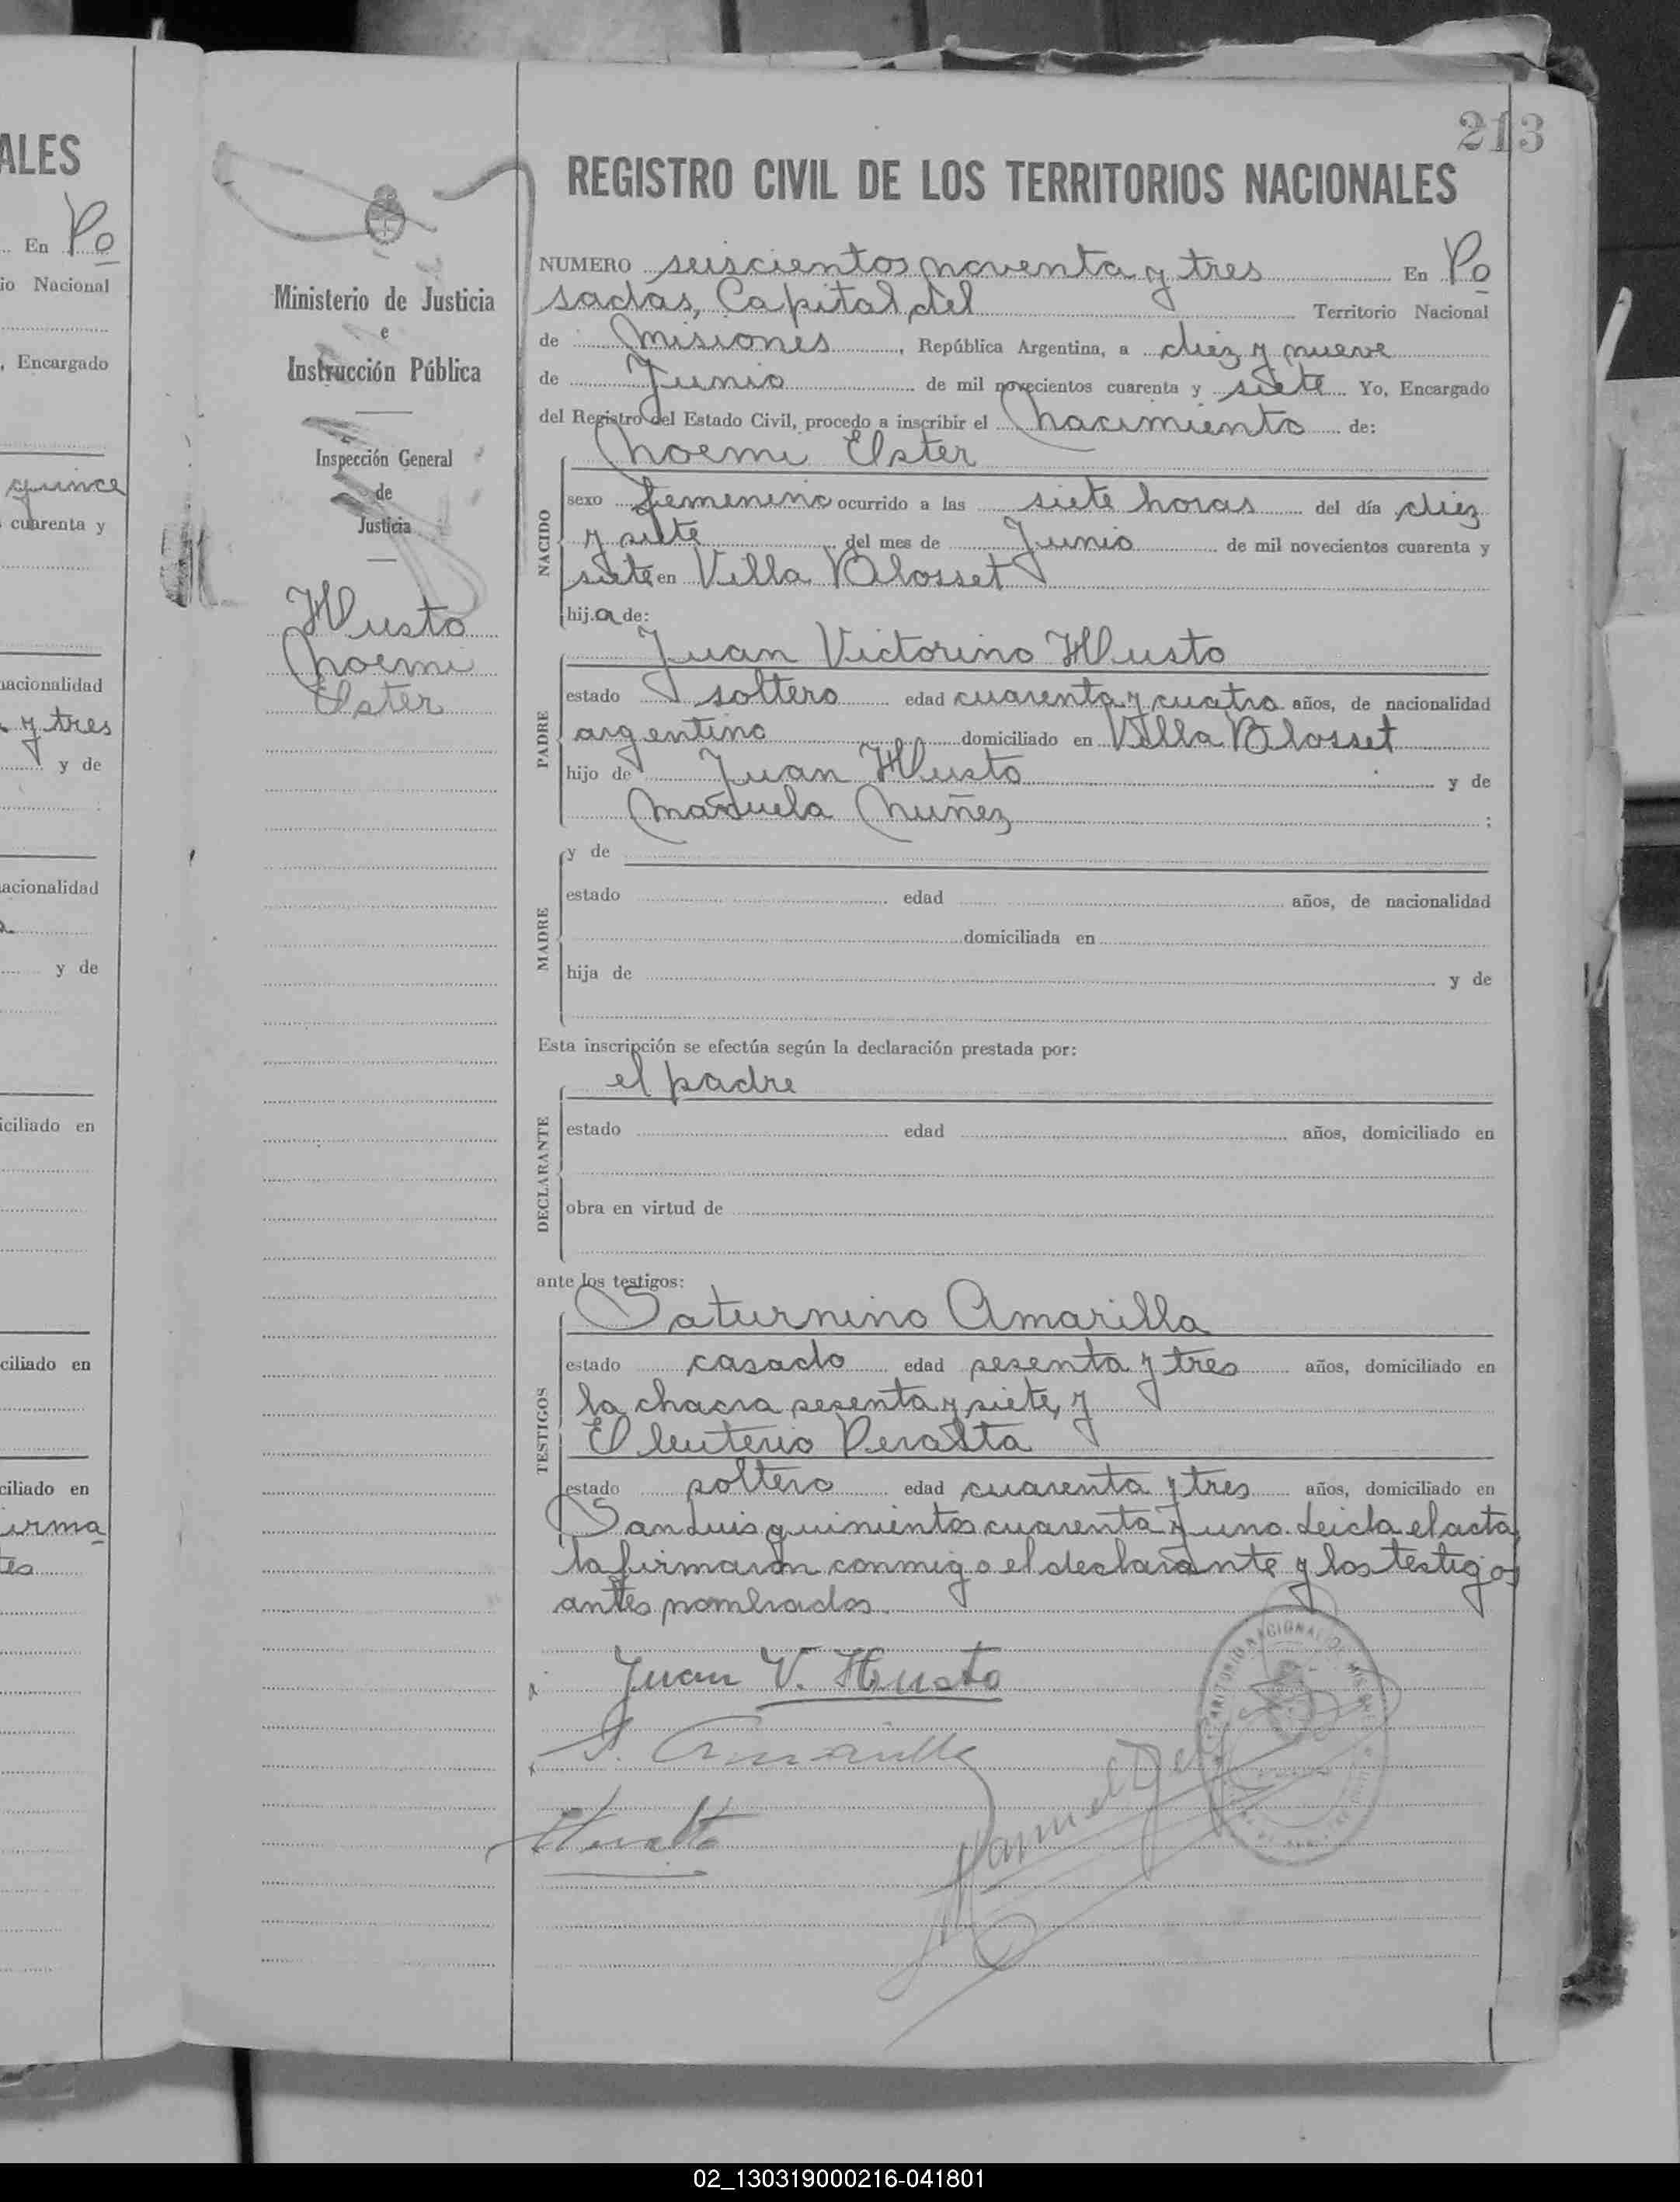 ALES
En Po
io Nacional
, Encargado
quince
cuarenta y
nacionalidad
y tres
y de
acionalidad
y de
iciliado en
ciliado en
ciliado en
irma
tes
213
Ministerio de Justicia
e
Instrucción Pública
Inspección General
de
Justicia
Husto
Noemi
Ester
REGISTRO CIVIL DE LOS TERRITORIOS NACIONALES
NUMERO seiscientos noventa y tres En Po
sadas, Capital del Territorio Nacional
de Misiones, República Argentina, a diez y nueve
de Junio de mil novecientos cuarenta y siete Yo, Encargado
del Registro del Estado Civil, procedo a inscribir el Nacimiento de:
NACIDO
Noemi Ester
sexo femenino ocurrido a las siete horas del día diez
y siete del mes de Junio de mil novecientos cuarenta y
siete en Villa Blosset
hija de:
PADRE
Juan Victorino Husto
estado soltero edad cuarenta y cuatro años, de nacionalidad
argentino domiciliado en Villa Blosset
hijo de Juan Husto y de
Manuela Nuñez ;
MADRE
y de
estado edad años, de nacionalidad
domiciliada en
hija de y de
Esta inscripción se efectúa según la declaración prestada por:
DECLARANTE
el padre
estado edad años, domiciliado en
obra en virtud de
ante los testigos:
TESTIGOS
Saturnino Amarilla
estado casado edad sesenta y tres años, domiciliado en
la chacra sesenta y siete, y
Eleuterio Peralta
estado soltero edad cuarenta y tres años, domiciliado en
San Luis quinientos cuarenta y uno. Leida el acta,
la firmaron conmigo el declarante y los testigos
antes nombrados.
Juan V. Husto
S. Amarilla
Manuel
TERRITORIO NACIONAL DE MISIONES
02_130319000216-041801